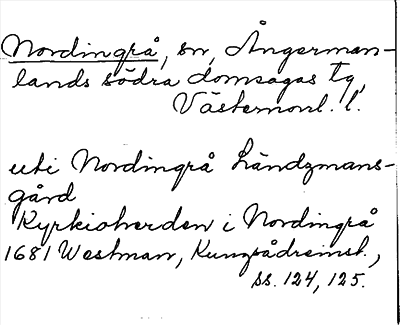 Nordingrå, sn, Ångerman-
lands södra domsagas tg,
Västernorrl. l.
uti Nordingrå Ländzmans-
gård
Kyrkioherden i Nordingrå
1681 Westman, Kungrådzinst.,
ss. 124, 125.